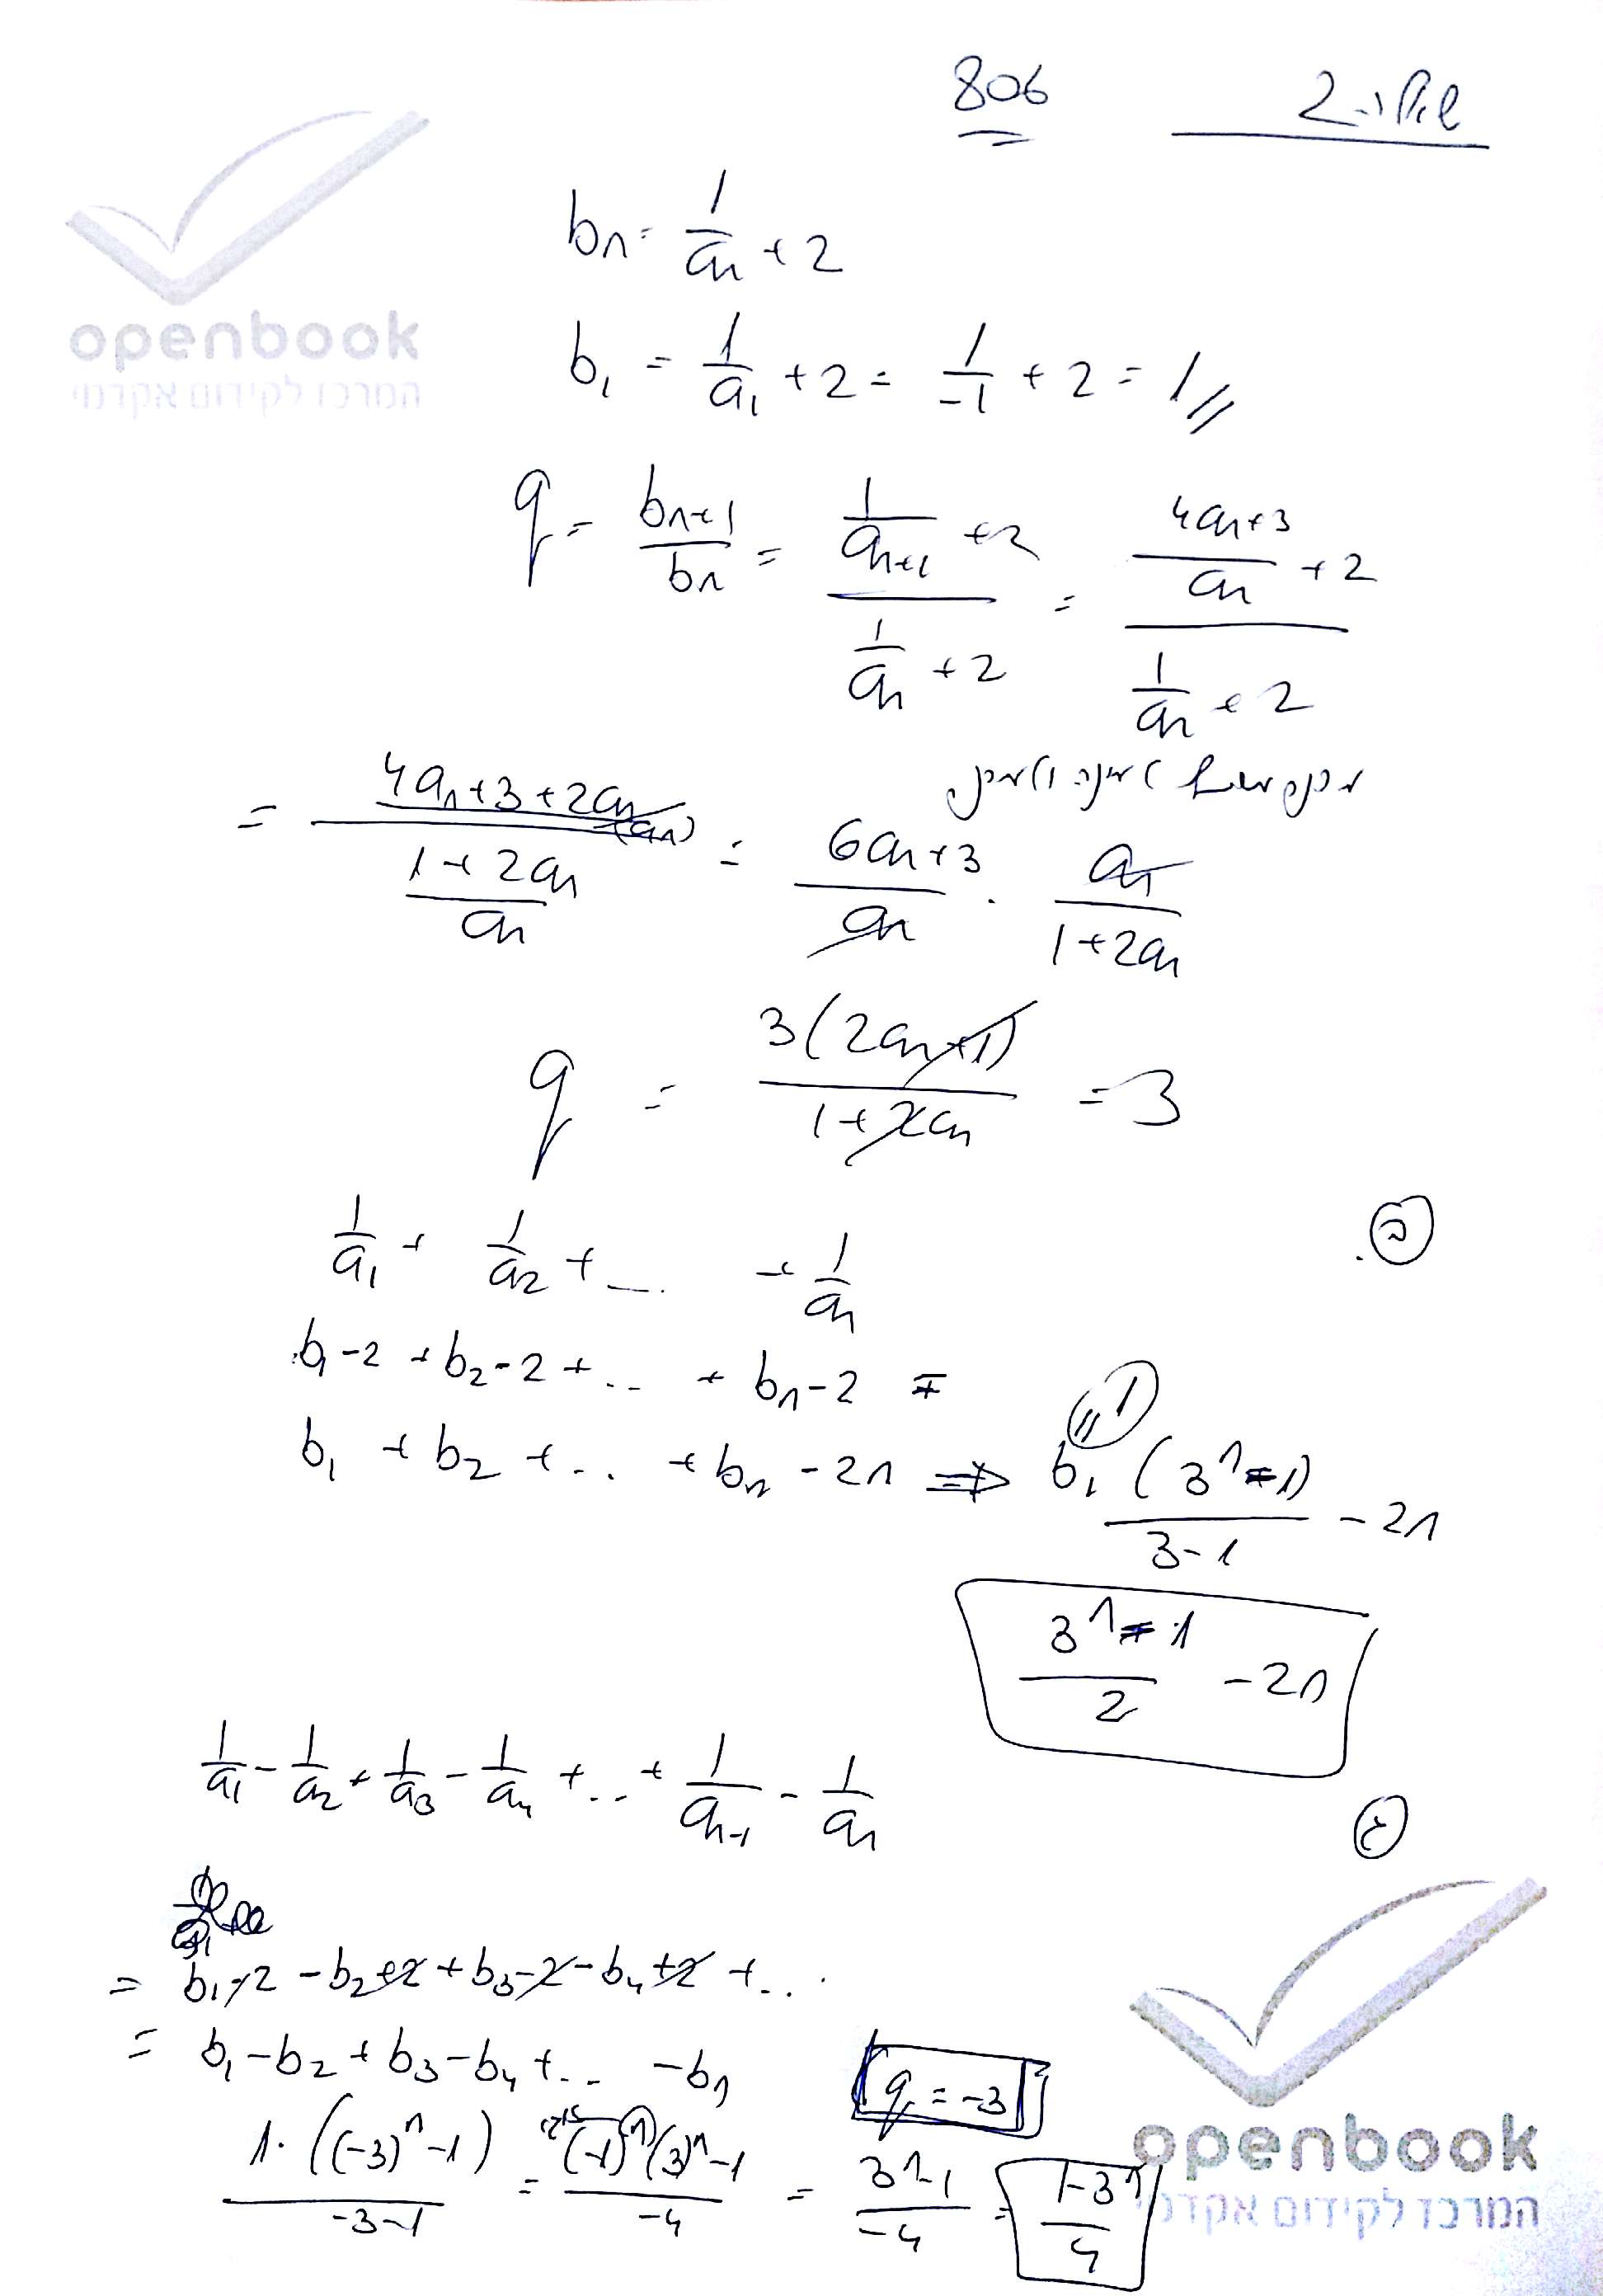 שאלה 2. 806
openbook
המרכז לקידום אקדמי
bn = 1/an + 2
b1 = 1/a1 + 2 = 1/-1 + 2 = 1
q = bn+1/bn = (1/an+1 + 2)/(1/an + 2) = ((4an+3)/an + 2)/(1/an + 2)
= ((4an+3+2an)/(an))/((1+2an)/an) = (6an+3)/an · an/(1+2an)
q = 3(2an+1)/(1+2an) = 3
ב.
1/a1 + 1/a2 + ... + 1/an
b1-2 + b2-2 + .. + bn-2 =
b1 + b2 + ... + bn - 2n => b1(3^n-1)/(3-1) - 2n
1
(3^n-1)/2 - 2n
ג
1/a1 - 1/a2 + 1/a3 - 1/a4 + ... + 1/an-1 - 1/an
= b1-2 - b2+2 + b3-2 - b4+2 + ...
= b1 - b2 + b3 - b4 + ... - bn
q = -3
1·((-3)^n-1)/(-3-1) = ((-1)^n(3)^n-1)/-4 = (3^n-1)/-4 = (1-3^n)/4
openbook
המרכז לקידום אקדמי